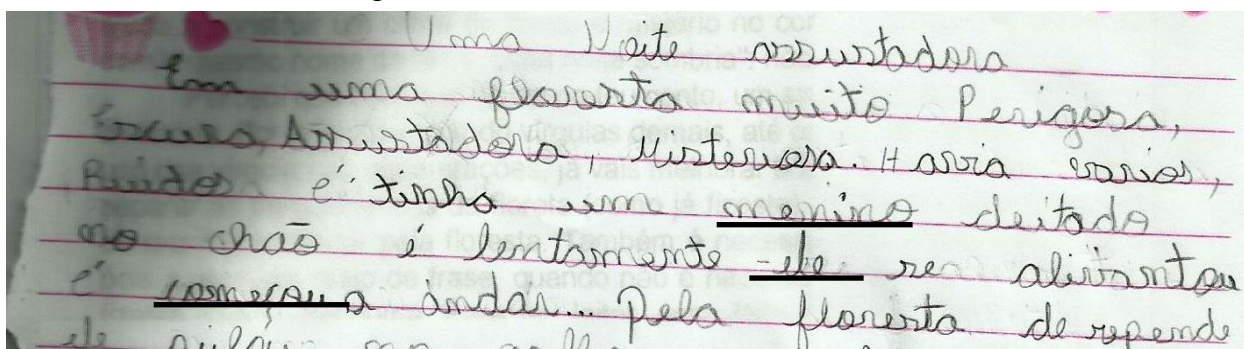 Uma Noite assustadora
Em uma floresta muito Perigosa,
éscura, Assustadora, Misteriosa. Havia varios,
Ruídos é tinha um menino deitado
no chão é lentamente ele se alivantou
é começou a ándar... Pela floresta de repende
ele